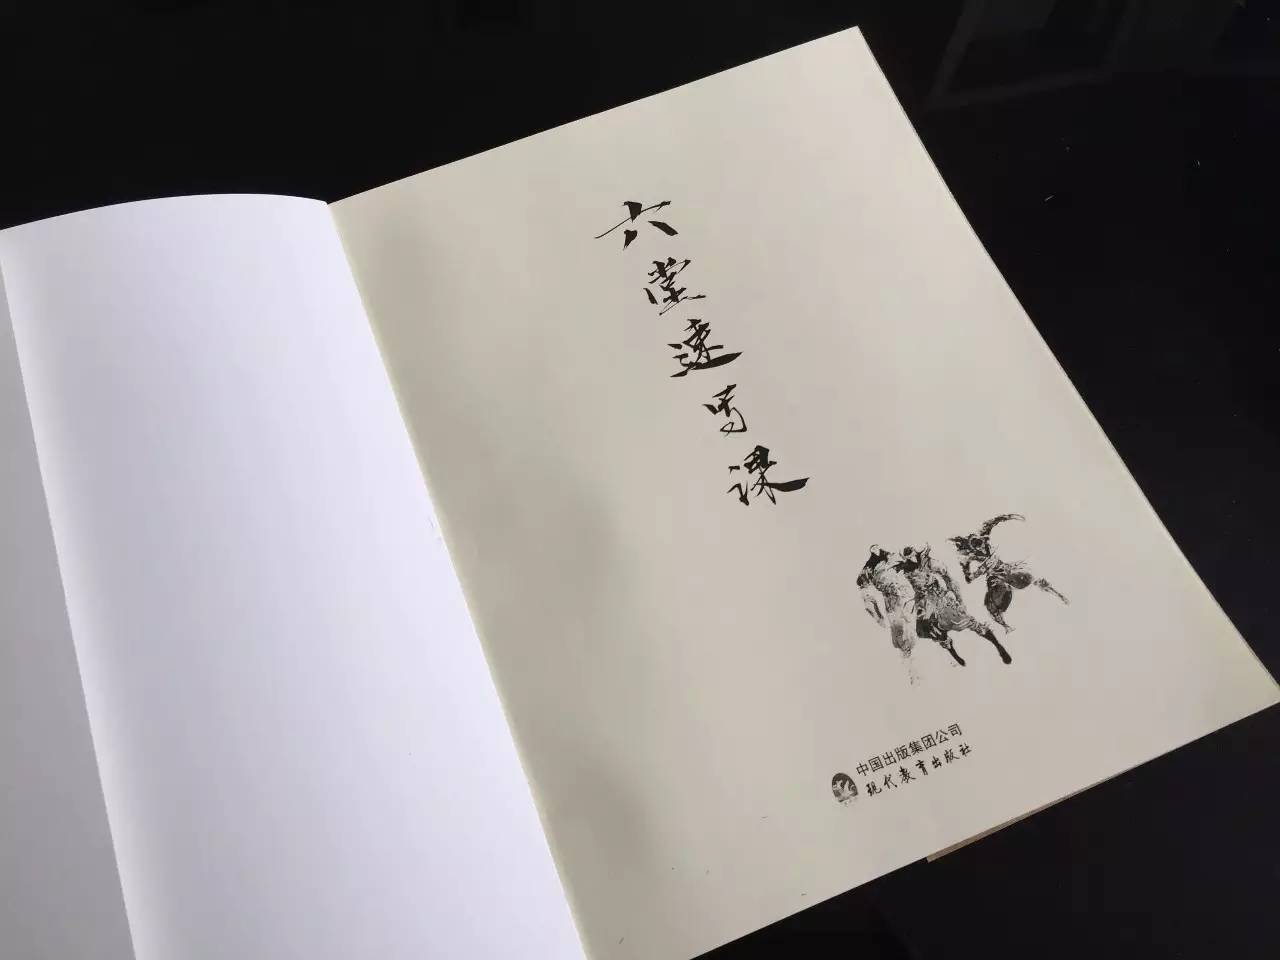 六堂速写课
中国出版集团公司
现代教育出版社